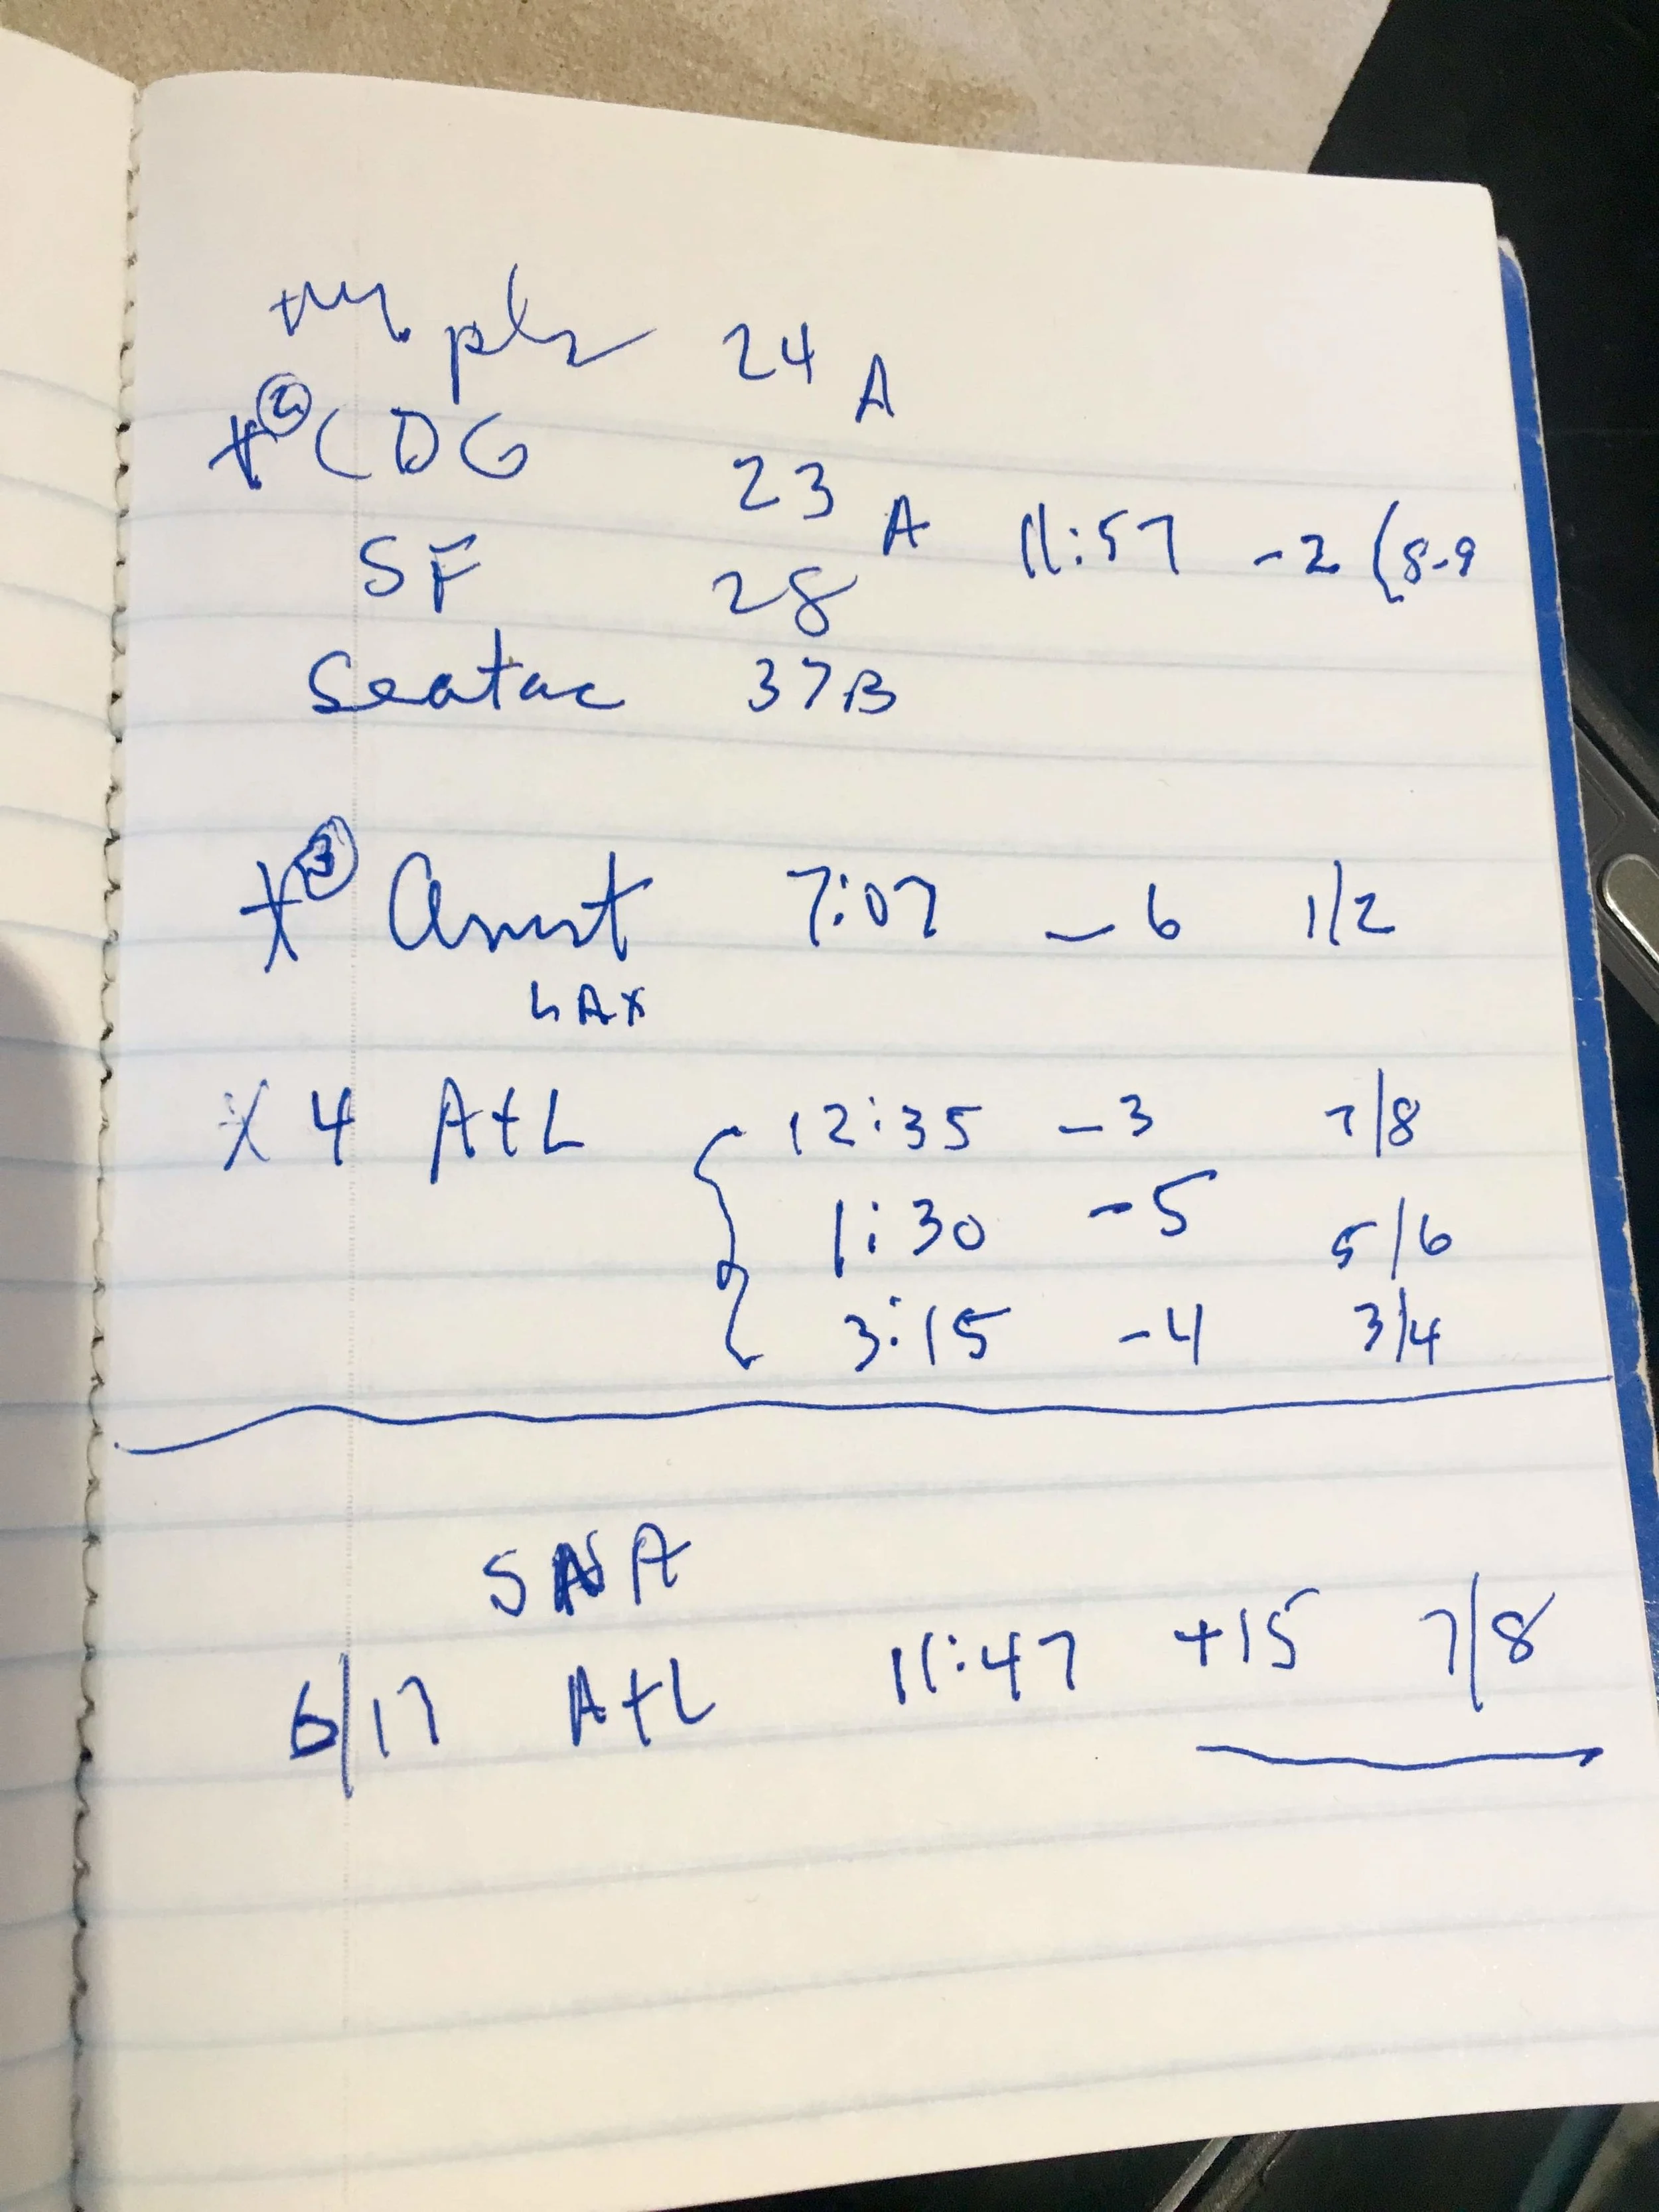 mpls 24 A
* ② CDG 23 A 11:57 -2 (8-9
SF 28
Seatac 37B
* ③ Amst 7:07 - 6 1/2
LAX
X 4 AtL { 12:35 - 3 7/8
1:30 - 5 5/6
3:15 - 4 3/4
SNA
6/17 AtL 11:47 +15 7/8